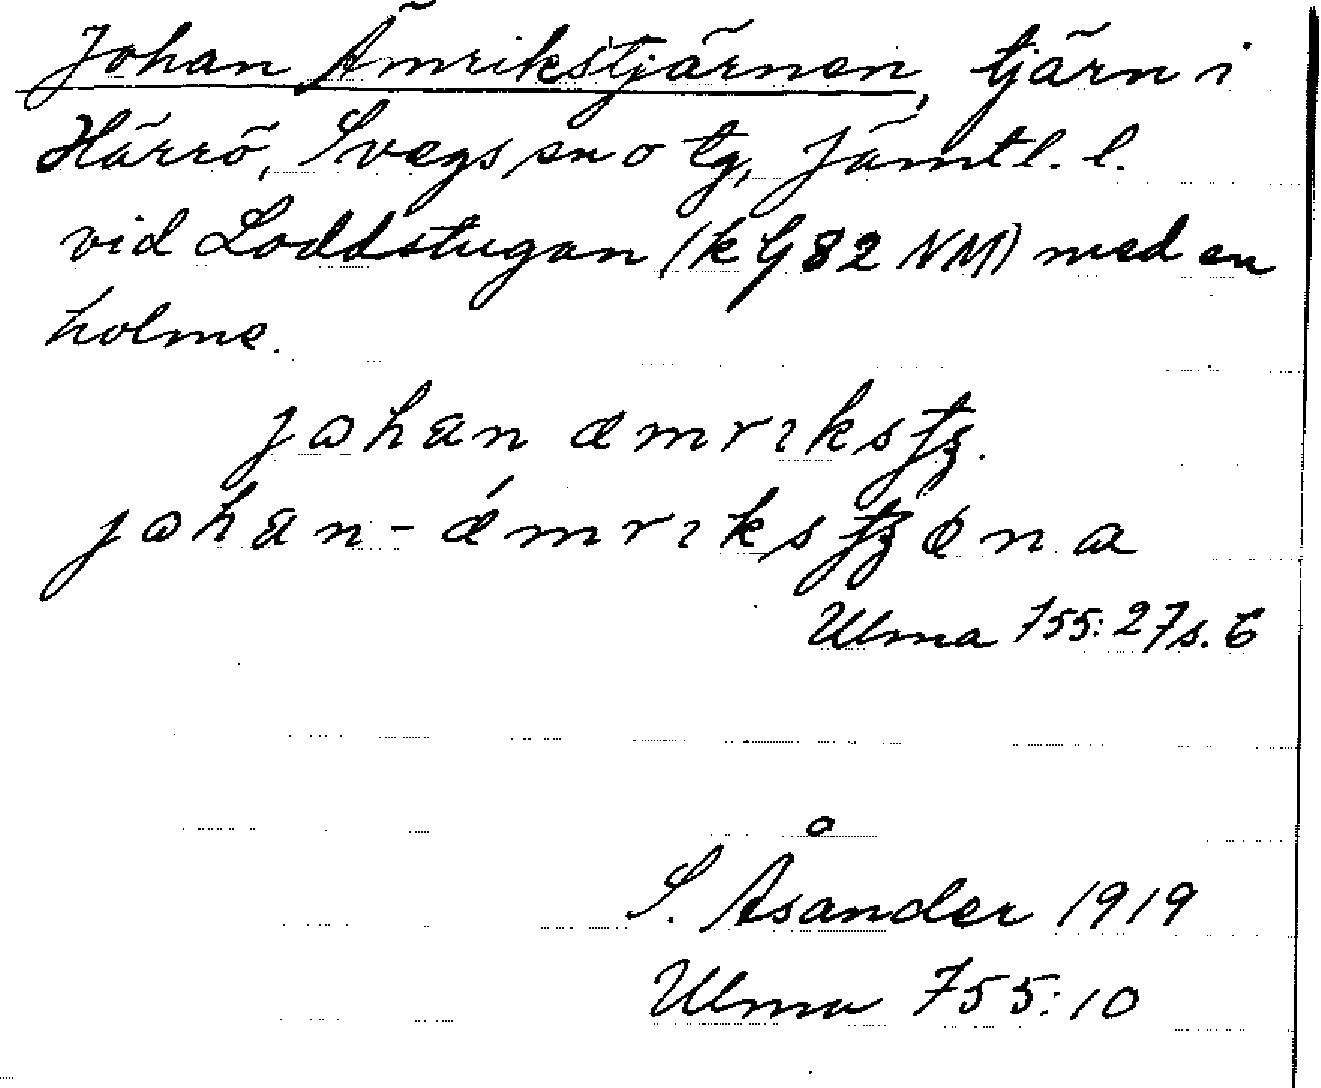 Johan Ämrikstjärnen, tjärn i
Härrö, Svegs sn o tg, Jämtl. l.
vid Loddstugan (k G 82 NM) med en
holme.
johan æmrıks
johan-ǽmrıks
Ulma 755:27 s. 6
S. Åsander 1919
Ulma 755:10